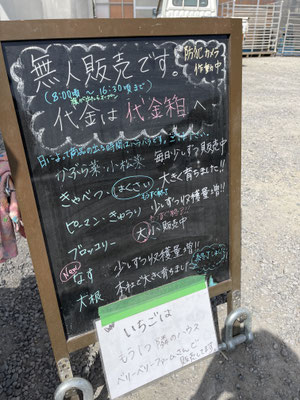 無人販売です。
防犯カメラ
作動中
(8:00頃 〜 16:30頃まで)
代金は 代金箱 へ
日によって商品の出る時間はバラバラです。
かぶり菜・小松菜 毎日少しずつ販売中
きゃべつ、はくさい 大きく育ちました!!
ピーマン・きゅうり 少しずつ収穫量増!!
ブロッコリー 大小販売中
New
なす 少しずつ収穫量増!!
大根 本社で大きく育ちました
いちごは
もう1つ隣のハウス
ベリーベリーファームさんで
販売してます